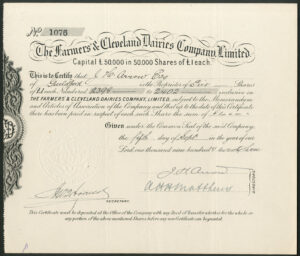 No. 1076
The Farmers & Cleveland Dairies Company, Limited.
Capital £50,000 in 50,000 Shares of £1 each
This is to Certify that J H Arrow Esq
of Guildford is the Proprietor of Five Shares
of £1 each Numbered 2398 to 2402 inclusive in
THE FARMERS & CLEVELAND DAIRIES COMPANY, LIMITED, subject to the Memorandum
and Articles of Association of the Company and that up to the date of this Certificate
there has been paid in respect of each such Share the sum of
Given under the Common Seal of the said Company
the fifth day of Sept in the year of our
Lord one thousand nine hundred and
J H Arrow
A H Matthews
SECRETARY.
This Certificate must be deposited at the Office of the Company with any Deed of Transfer either for the whole or
any portion of the above mentioned Shares before any new Certificate can be granted.